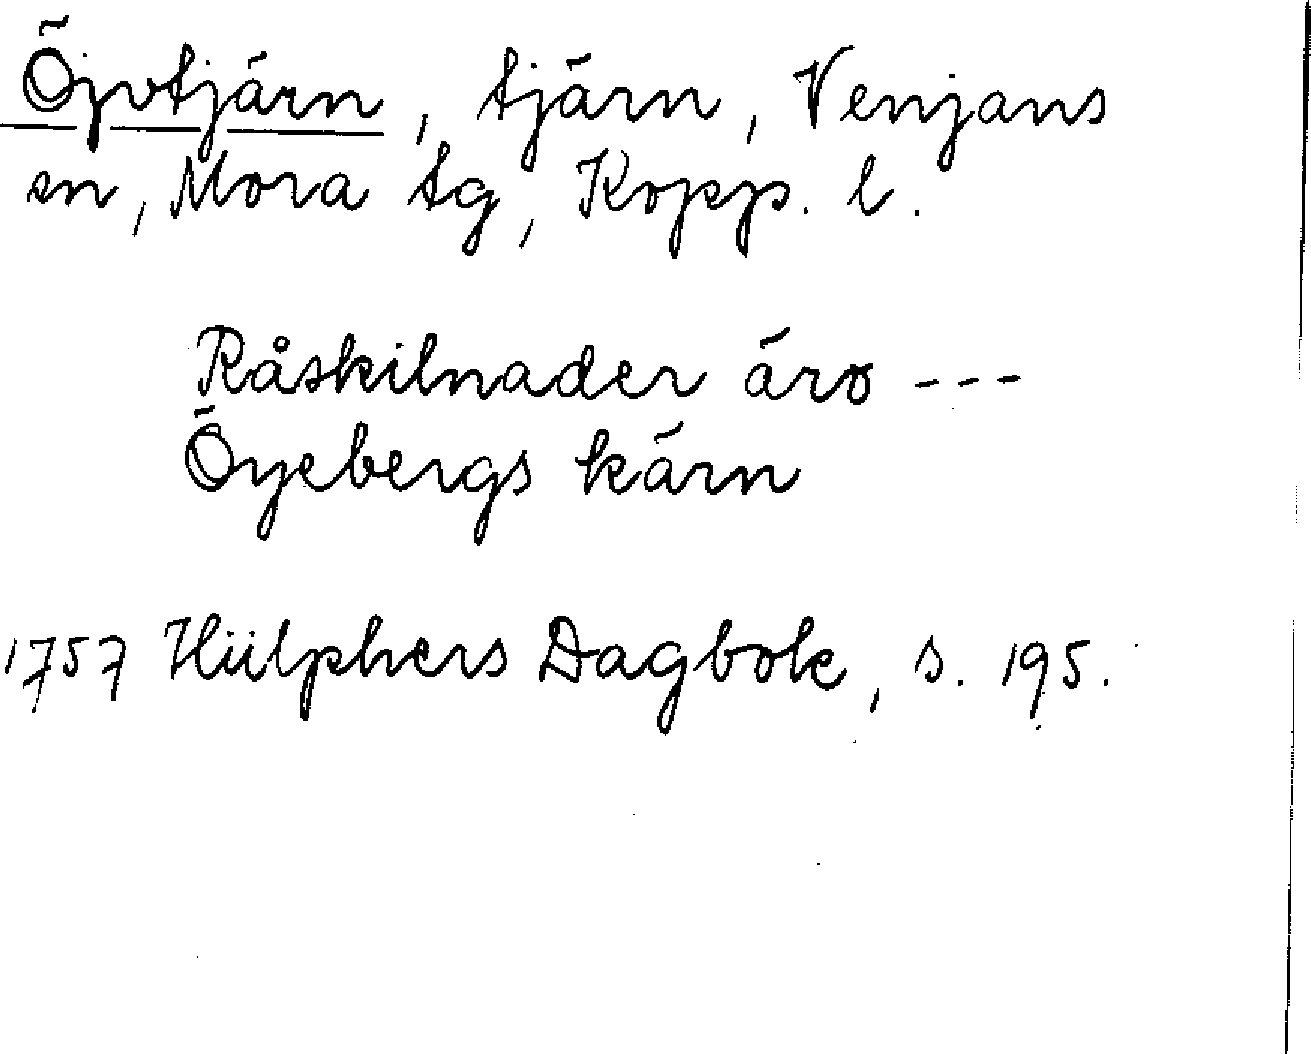 Öjvtjärn, tjärn, Venjans
sn, Mora tg, Kopp. l.
Råskilnader äro ---
Öyebergs kärn
1757 Hülphers Dagbok, s. 195.